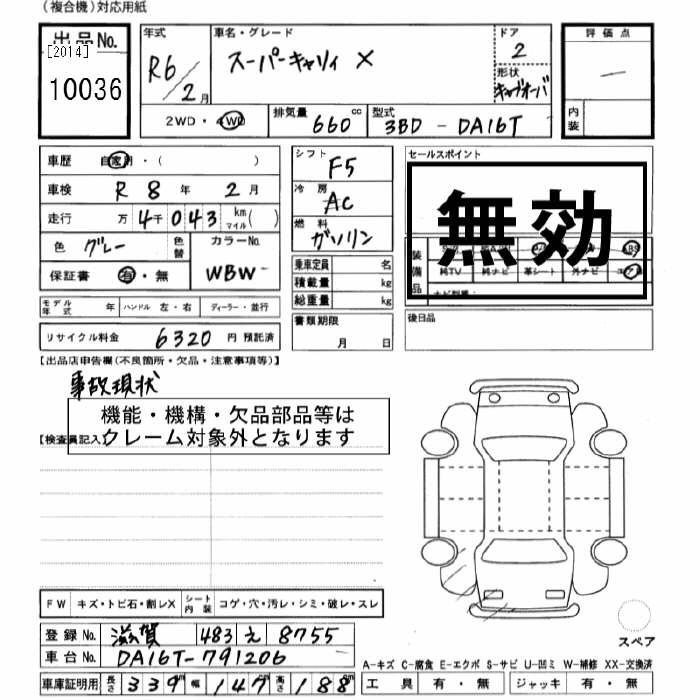 (複合機)対応用紙
出品No.
[2014]
10036
年式
R6/2月
車名・グレード
スーパーキャリィ X
ドア
2
形状
キャブオーバ
評価点
—
内装
2WD・4WD
排気量
660 cc
型式
3BD - DA16T
車歴 自家用・( )
車検 R 8 年 2 月
走行 万 4千 043 km マイル ( )
色 グレー 色替 カラーNo. WBW
保証書 有・無
シフト F5
冷房 AC
燃料 ガソリン
乗車定員 名
積載量 kg
総重量 kg
書類期限
月 日
セールスポイント
無効
装備品
純TV 純ナビ 革シート 外ナビ
後日品
モデル年式 年 ハンドル 左・右 ディーラー・並行
リサイクル料金 6320 円 預託済
【出品店申告欄(不良箇所・欠品・注意事項等)】
事故現状
機能・機構・欠品部品等は
クレーム対象外となります
【検査員記入】
FW キズ・トビ石・割レX シート内装 コゲ・穴・汚レ・シミ・破レ・スレ
登録No. 滋賀 483 え 8755
車台No. DA16T-791206
車庫証明用 長さ 339 幅 147 高さ 188
スペア
A-キズ C-腐食 E-エクボ S-サビ U-凹ミ W-補修 XX-交換済
工具 有・無 ジャッキ 有・無